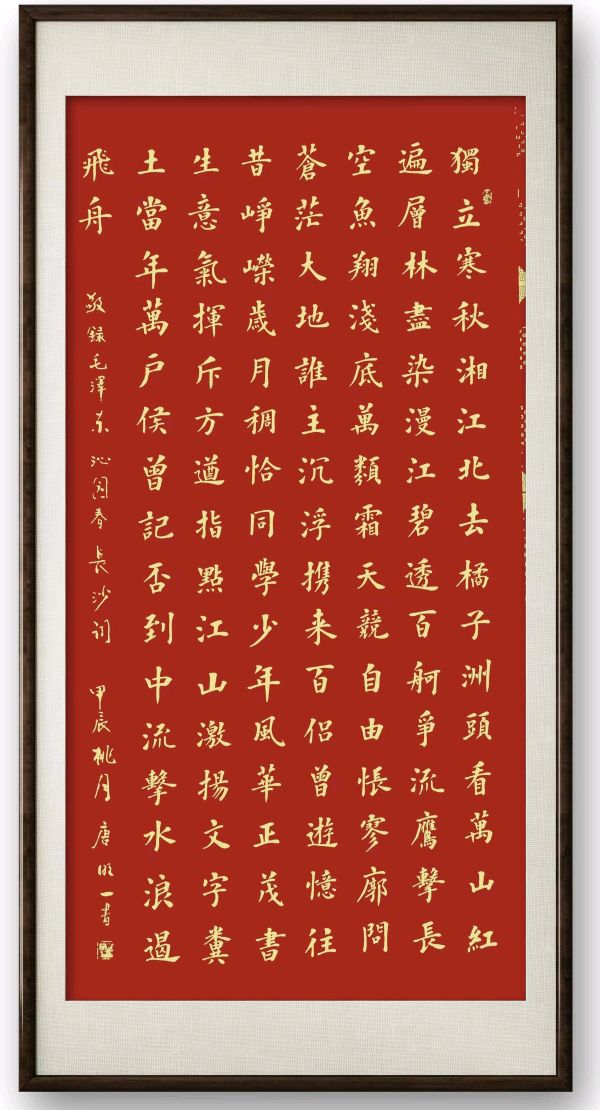 獨立寒秋湘江北去橘子洲頭看萬山紅
遍層林盡染漫江碧透百舸爭流鷹擊長
空魚翔淺底萬類霜天競自由悵寥廓問
蒼茫大地誰主沉浮携来百侣曾遊憶往
昔崢嶸歲月稠恰同學少年風華正茂書
生意氣揮斥方遒指點江山激揚文字糞
土當年萬戶侯曾記否到中流擊水浪遏
飛舟
敬録毛澤东沁園春長沙詞 甲辰桃月唐一書